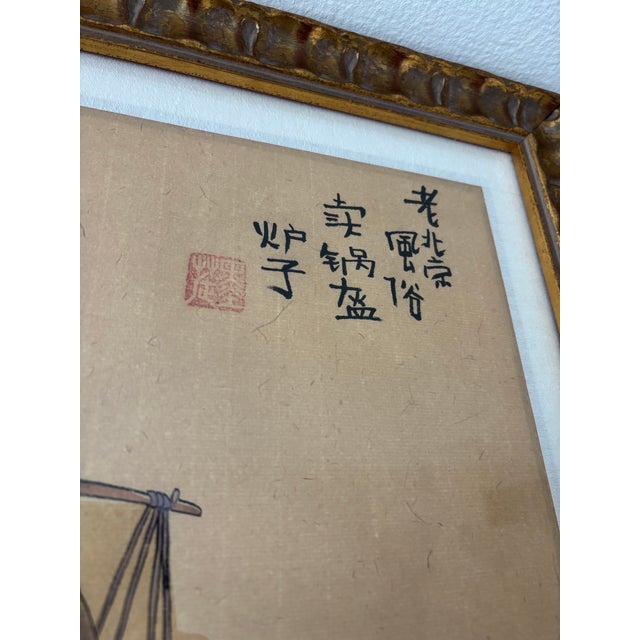 老北京
風俗
卖锅盔
炉子